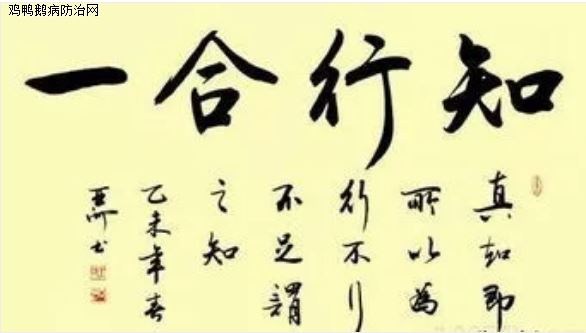 鸡鸭鹅病防治网
知行合一
真知即
所以為
行不行
不足謂
之知
乙未年春
书